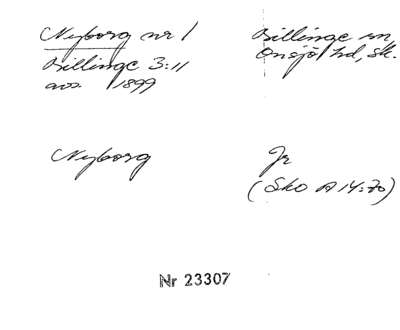 Nyborg nr 1
Billinge sn,
Onsjö hd, Sk.
Billinge 3:11
avs. 1899
Nyborg
Jr
(Sko A 14:70)
Nr 23307